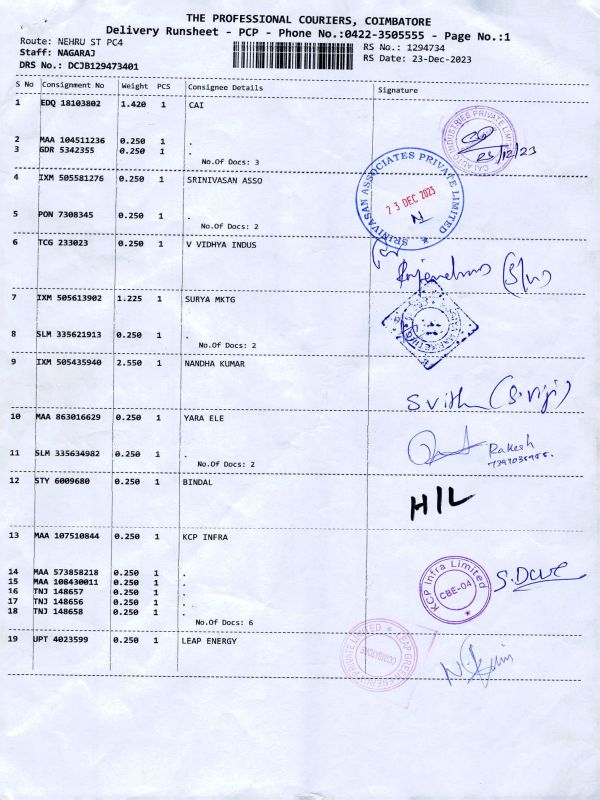 THE PROFESSIONAL COURIERS, COIMBATORE
Delivery Runsheet - PCP - Phone No.:0422-3505555 - Page No.:1
Route: NEHRU ST PC4
RS No.: 1294734
Staff: NAGARAJ
RS Date: 23-Dec-2023
DRS No.: DCJB129473401
S No Consignment No Weight PCS Consignee Details Signature
1 EDQ 18103802 1.420 1 CAI
2 MAA 104511236 0.250 1 .
3 GDR 5342355 0.250 1 .
23/12/23
No.Of Docs: 3
4 IXM 505581276 0.250 1 SRINIVASAN ASSO
SRINIVASAN ASSOCIATES PRIVATE LIMITED
23 DEC 2023
5 PON 7308345 0.250 1 .
No.Of Docs: 2
6 TCG 233023 0.250 1 V VIDHYA INDUS
7 IXM 505613902 1.225 1 SURYA MKTG
8 SLM 335621913 0.250 1 .
No.Of Docs: 2
9 IXM 505435940 2.550 1 NANDHA KUMAR
10 MAA 863016629 0.250 1 YARA ELE
Rakesh
11 SLM 335634982 0.250 1 .
No.Of Docs: 2
12 STY 6009680 0.250 1 BINDAL
H/L
13 MAA 107510844 0.250 1 KCP INFRA
14 MAA 573858218 0.250 1 .
15 MAA 108430011 0.250 1 .
16 TNJ 148657 0.250 1 .
17 TNJ 148656 0.250 1 .
18 TNJ 148658 0.250 1 .
KCP Infra Limited
CBE-04
No.Of Docs: 6
19 UPT 4023599 0.250 1 LEAP ENERGY